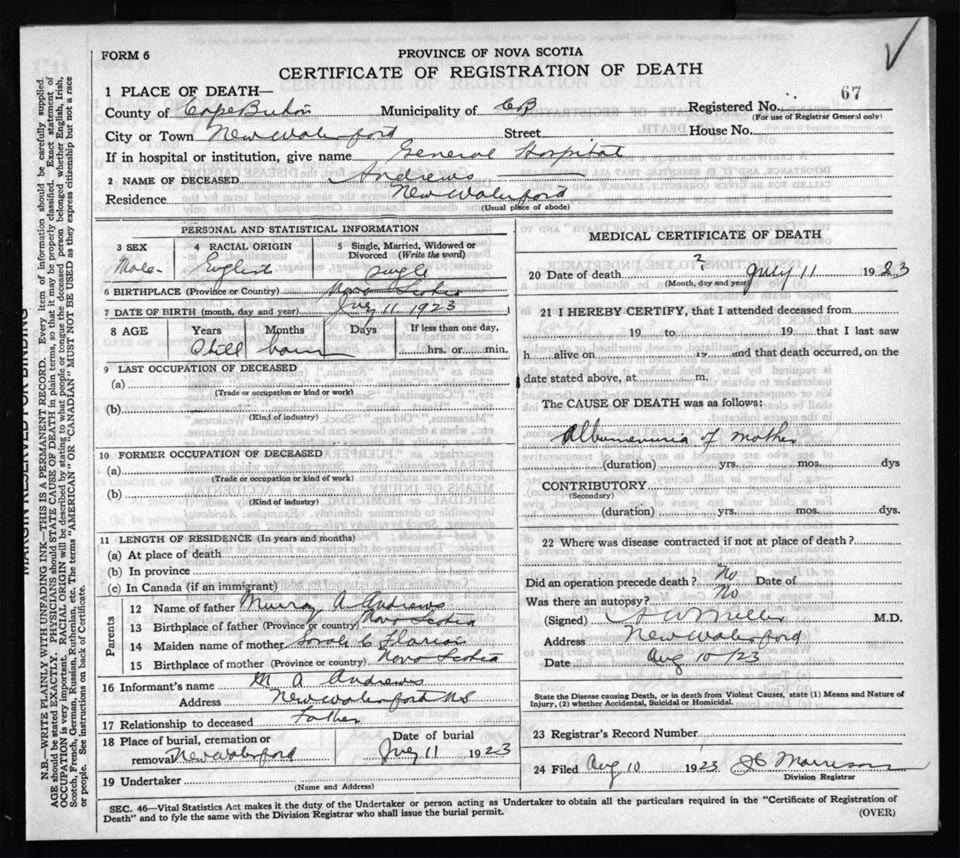 FORM 6
PROVINCE OF NOVA SCOTIA
CERTIFICATE OF REGISTRATION OF DEATH
1 PLACE OF DEATH—
County of Cape Breton Municipality of CB Registered No. 67
(For use of Registrar General only)
City or Town New Waterford Street House No.
If in hospital or institution, give name General Hospital
2 NAME OF DECEASED Andrews
Residence New Waterford
(Usual place of abode)
PERSONAL AND STATISTICAL INFORMATION
3 SEX 4 RACIAL ORIGIN 5 Single, Married, Widowed or Divorced (Write the word)
Male English Single
6 BIRTHPLACE (Province or Country) Nova Scotia
7 DATE OF BIRTH (month, day and year) 11 1923
8 AGE Years Months Days If less than one day,
Still born hrs. or min.
9 LAST OCCUPATION OF DECEASED
(a)
(Trade or occupation or kind or work)
(b)
(Kind of industry)
10 FORMER OCCUPATION OF DECEASED
(a)
(Trade or occupation or kind of work)
(b)
(Kind of industry)
11 LENGTH OF RESIDENCE (In years and months)
(a) At place of death
(b) In province
(c) In Canada (if an immigrant)
Parents
12 Name of father Murray A Andrews
13 Birthplace of father (Province or country) Nova Scotia
14 Maiden name of mother Sarah C
15 Birthplace of mother (Province or country) Nova Scotia
16 Informant's name M A Andrews
Address New Waterford NS
17 Relationship to deceased Father
18 Place of burial, cremation or removal New Waterford
Date of burial 11 1923
19 Undertaker
(Name and Address)
MEDICAL CERTIFICATE OF DEATH
20 Date of death ? July 11 1923
(Month, day and year)
21 I HEREBY CERTIFY, that I attended deceased from
19 to 19 that I last saw
h alive on 19 and that death occurred, on the
date stated above, at m.
The CAUSE OF DEATH was as follows:
Albumenuria of mother
(duration) yrs. mos. dys
CONTRIBUTORY
(Secondary)
(duration) yrs. mos. dys.
22 Where was disease contracted if not at place of death?
Did an operation precede death? No Date of
Was there an autopsy? No
(Signed) W Miller M.D.
Address New Waterford
Date Aug 10/23
State the Disease causing Death, or in death from Violent Causes, state (1) Means and Nature of
Injury, (2) whether Accidental, Suicidal or Homicidal.
23 Registrar's Record Number
24 Filed Aug 10 1923 Morrison
Division Registrar
SEC. 46—Vital Statistics Act makes it the duty of the Undertaker or person acting as Undertaker to obtain all the particulars required in the "Certificate of Registration of
Death" and to fyle the same with the Division Registrar who shall issue the burial permit.
(OVER)
MARGIN RESERVED FOR BINDING
N.B.—WRITE PLAINLY WITH UNFADING INK—THIS IS A PERMANENT RECORD. Every item of information should be carefully supplied.
AGE should be stated EXACTLY. PHYSICIANS should STATE CAUSE OF DEATH in plain terms, so that it may be properly classified. Exact statement of
OCCUPATION is very important. RACIAL ORIGIN will be described by stating to what people or tongue the deceased person belonged whether English, Irish,
Scotch, French, German, Russian, Ruthenian, etc. The terms "AMERICAN" OR "CANADIAN" MUST NOT BE USED as they express citizenship but not a race
or people. See instructions on back of Certificate.